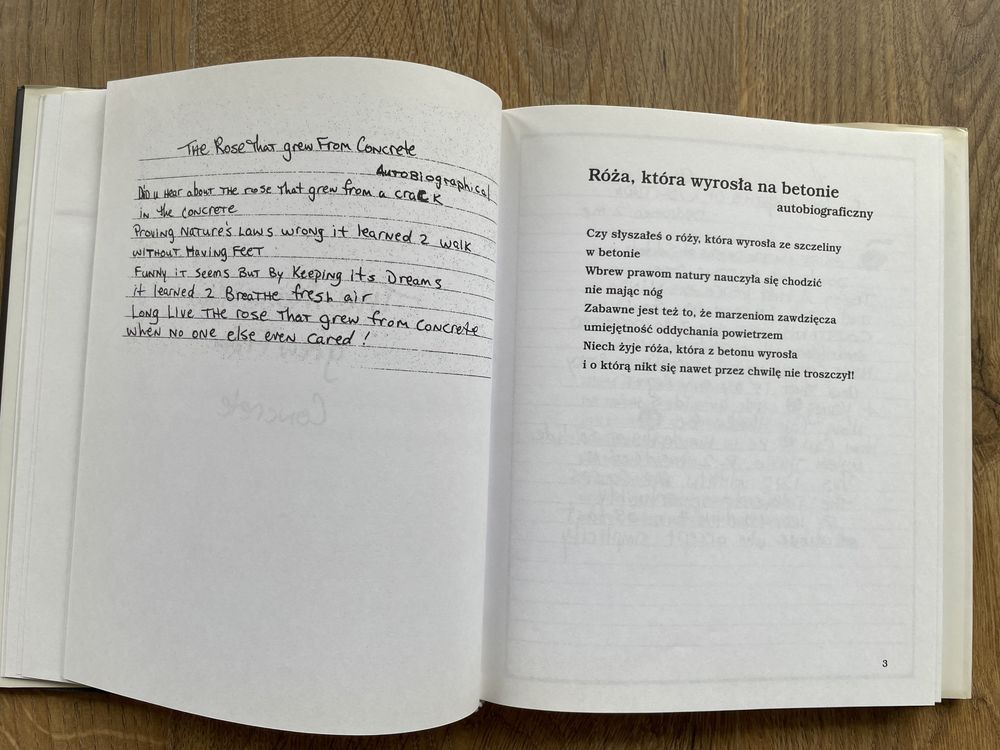 The Rose That grew From Concrete
AutoBiographical
Did u hear about The rose that grew from a crack
in the concrete
Proving Nature's Laws wrong it learned 2 walk
without Having Feet
Funny it seems But By Keeping its Dreams
it learned 2 Breathe fresh air
Long Live The rose that grew from concrete
when no one else even cared!
Concrete
Róża, która wyrosła na betonie
autobiograficzny
Czy słyszałeś o róży, która wyrosła ze szczeliny
w betonie
Wbrew prawom natury nauczyła się chodzić
nie mając nóg
Zabawne jest też to, że marzeniom zawdzięcza
umiejętność oddychania powietrzem
Niech żyje róża, która z betonu wyrosła
i o którą nikt się nawet przez chwilę nie troszczył!
3